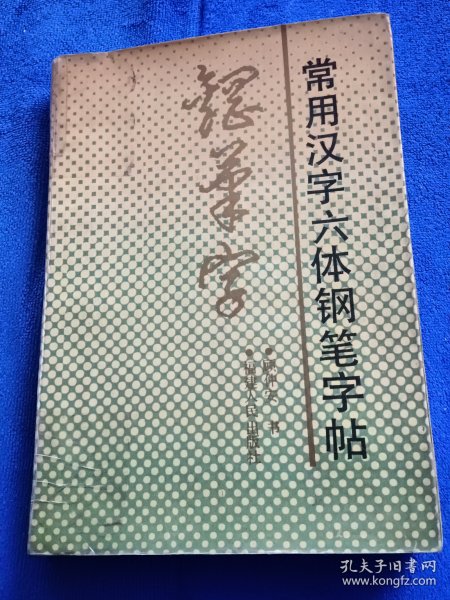 常用汉字六体钢笔字帖
鋼筆字
●顾仲安 书
●福建人民出版社
孔夫子旧书网
www.kongfz.com